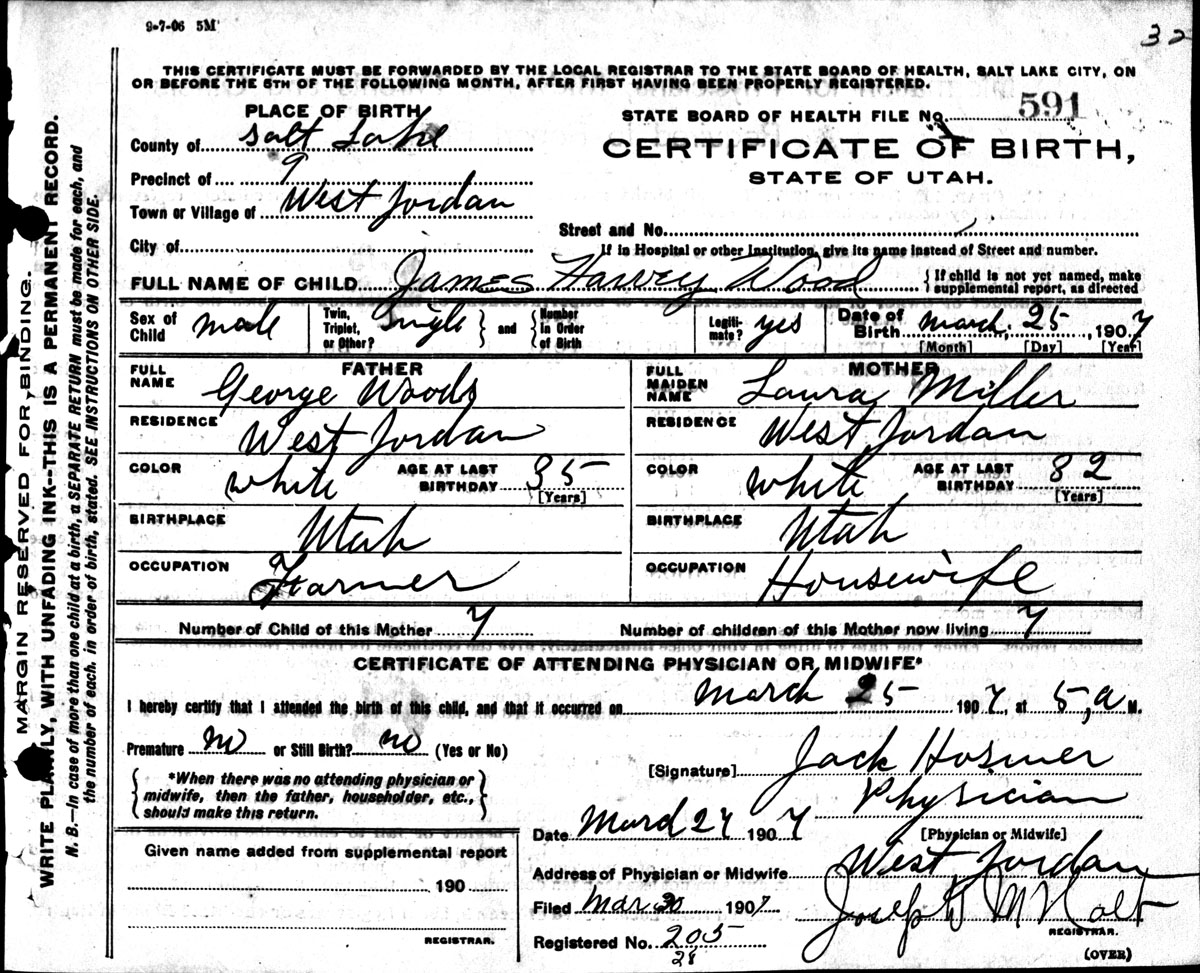 9-7-06 5M
32
THIS CERTIFICATE MUST BE FORWARDED BY THE LOCAL REGISTRAR TO THE STATE BOARD OF HEALTH, SALT LAKE CITY, ON
OR BEFORE THE 5TH OF THE FOLLOWING MONTH, AFTER FIRST HAVING BEEN PROPERLY REGISTERED.
PLACE OF BIRTH
STATE BOARD OF HEALTH FILE No. 591
County of Salt Lake
CERTIFICATE OF BIRTH,
Precinct of 9
STATE OF UTAH.
Town or Village of West Jordan
Street and No.
City of
If in Hospital or other Institution, give its name instead of Street and number.
FULL NAME OF CHILD James Harvey Wood {If child is not yet named, make
supplemental report, as directed
Sex of Child male Twin, Triplet, or Other? Single } and { Number in Order of Birth Legiti-mate? yes Date of Birth March 25, 1907
[Month] [Day] [Year]
FATHER MOTHER
FULL NAME George Woods FULL MAIDEN NAME Laura Miller
RESIDENCE West Jordan RESIDENCE West Jordan
COLOR white AGE AT LAST BIRTHDAY 35 [Years] COLOR white AGE AT LAST BIRTHDAY 32 [Years]
BIRTHPLACE Utah BIRTHPLACE Utah
OCCUPATION Farmer OCCUPATION Housewife
Number of Child of this Mother 7 Number of children of this Mother now living 7
CERTIFICATE OF ATTENDING PHYSICIAN OR MIDWIFE*
I hereby certify that I attended the birth of this child, and that it occurred on March 25 1907, at 5, a M.
Premature no or Still Birth? no (Yes or No)
[Signature] Jack Hosmer
{ *When there was no attending physician or
midwife, then the father, householder, etc.,
should make this return. }
Physician
Date March 27 1907 [Physician or Midwife]
Given name added from supplemental report
Address of Physician or Midwife West Jordan
190
Filed Mar 30 1907 Joseph M Holt
REGISTRAR.
REGISTRAR.
Registered No. 205
28
(OVER)
MARGIN RESERVED FOR BINDING.
WRITE PLAINLY, WITH UNFADING INK--THIS IS A PERMANENT RECORD.
N. B.—In case of more than one child at a birth, a SEPARATE RETURN must be made for each, and
the number of each, in order of birth, stated. SEE INSTRUCTIONS ON OTHER SIDE.